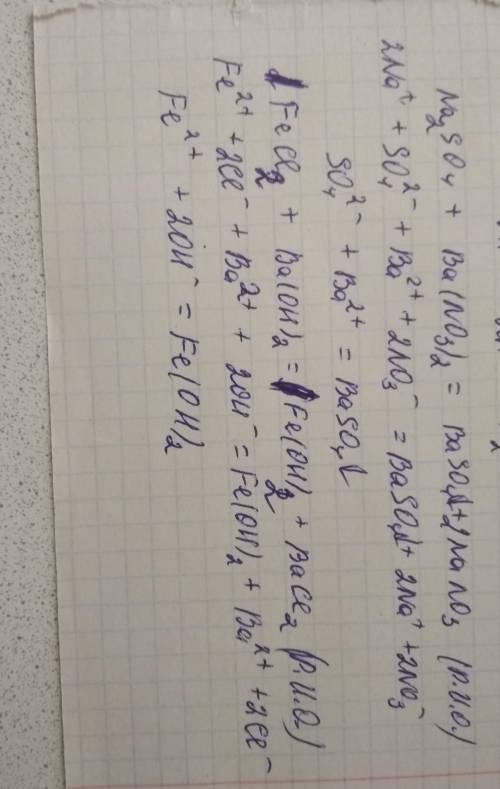 Na₂SO₄ + Ba(NO₃)₂ = BaSO₄↓ + 2NaNO₃ (Р.И.О.)
2Na⁺ + SO₄²⁻ + Ba²⁺ + 2NO₃⁻ = BaSO₄↓ + 2Na⁺ + 2NO₃⁻
SO₄²⁻ + Ba²⁺ = BaSO₄↓
FeCl₂ + Ba(OH)₂ = Fe(OH)₂ + BaCl₂ (Р.И.О.)
Fe²⁺ + 2Cl⁻ + Ba²⁺ + 2OH⁻ = Fe(OH)₂ + Ba²⁺ + 2Cl⁻
Fe²⁺ + 2OH⁻ = Fe(OH)₂